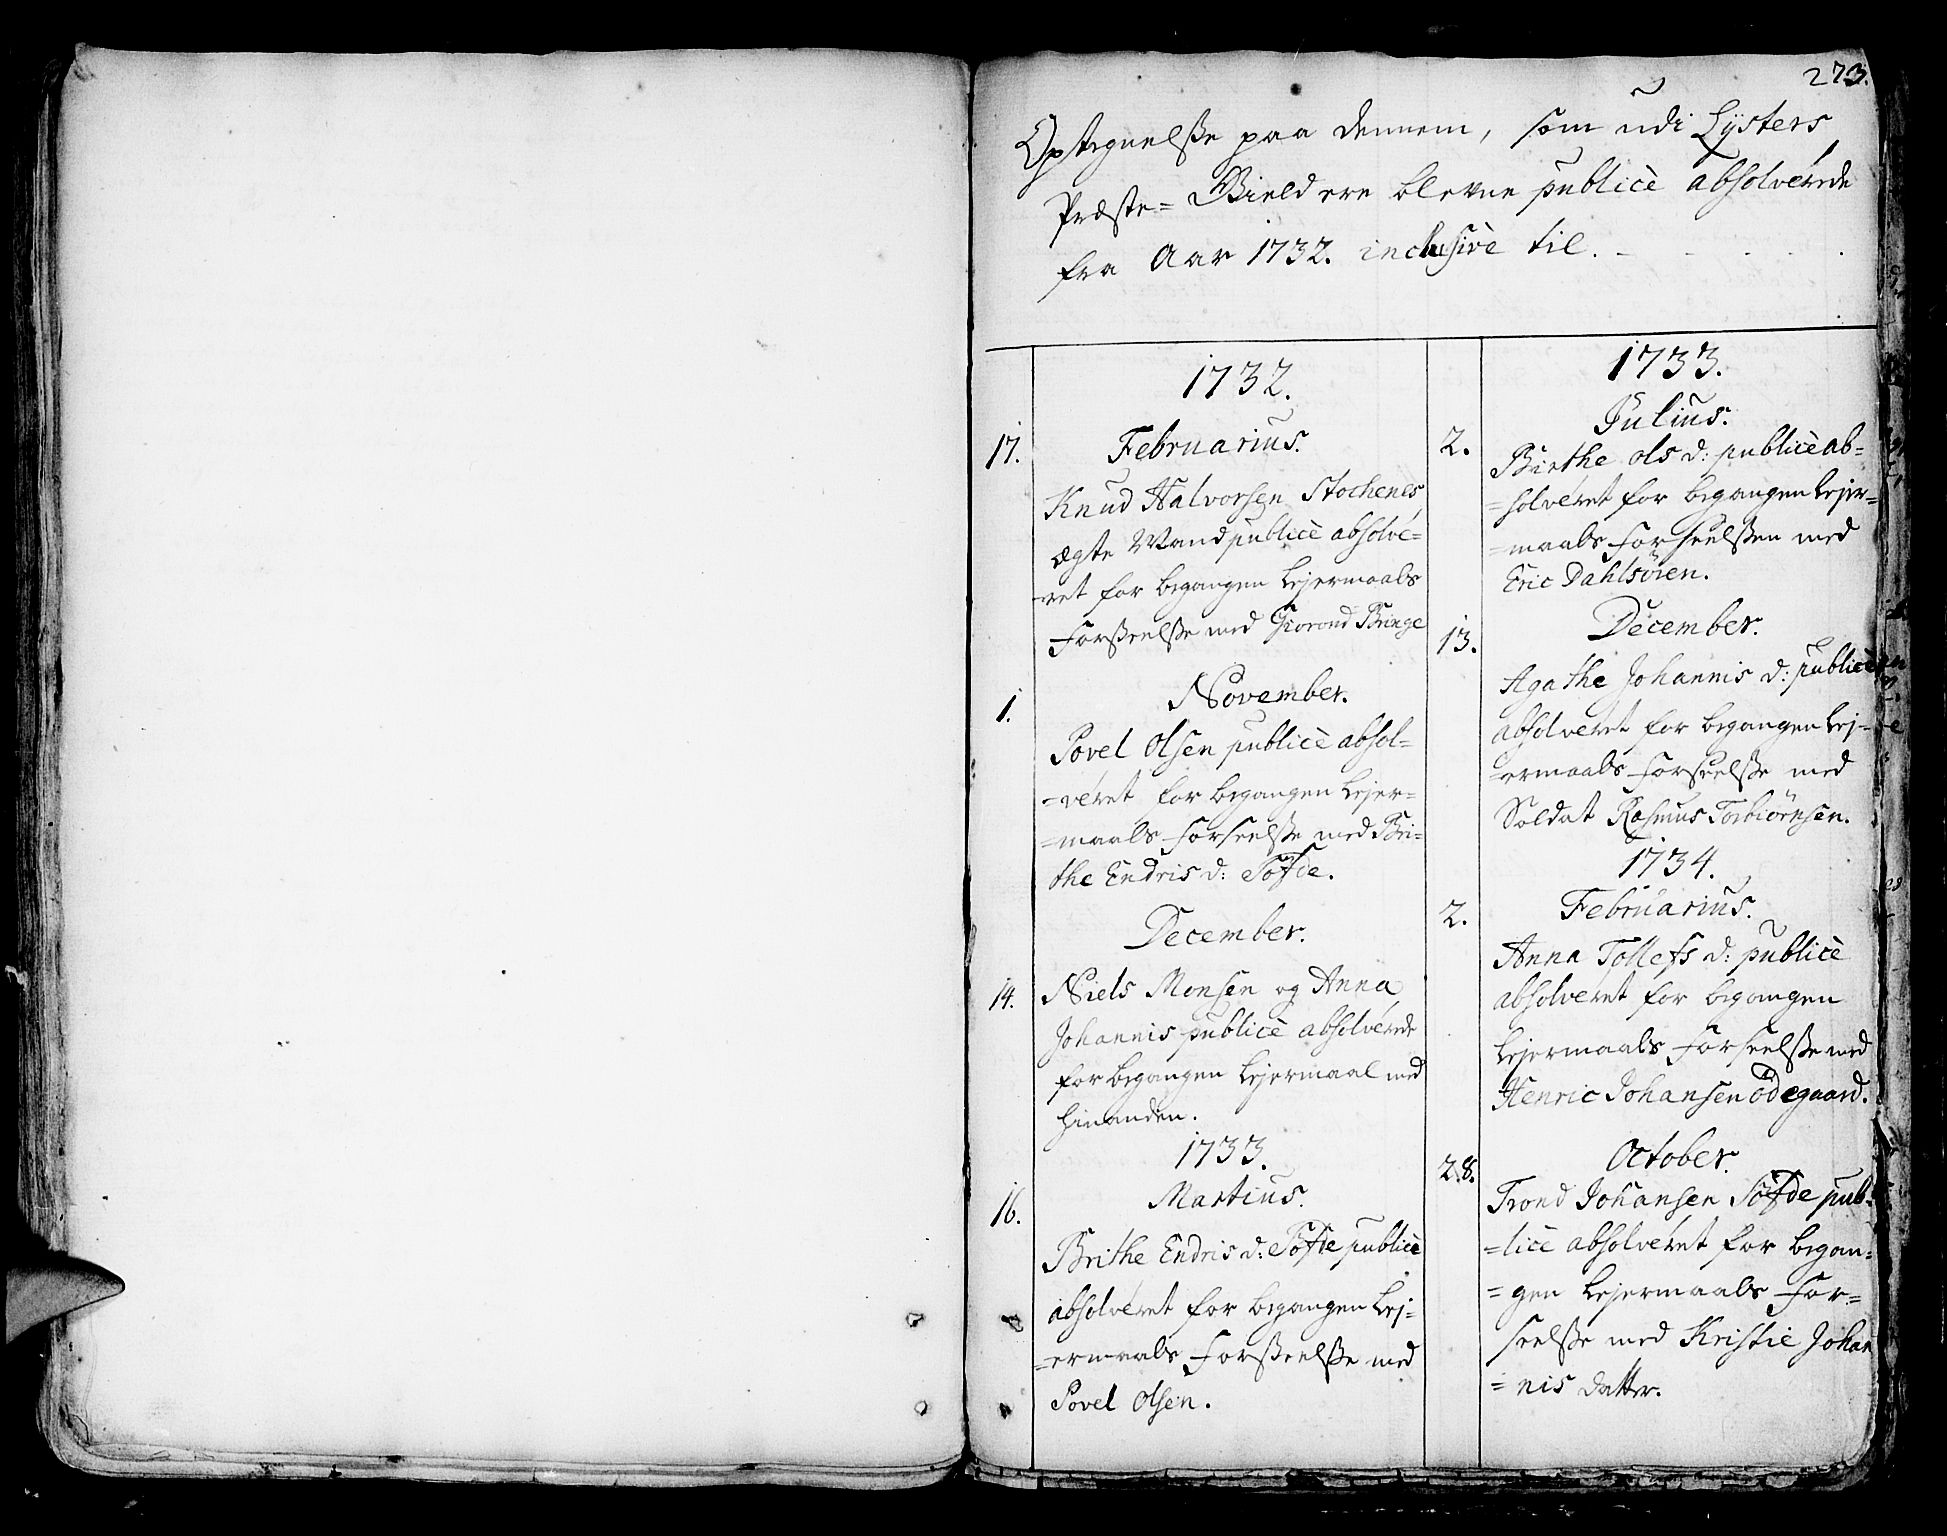 273.
Optegnelsse paa dennem, som udi Lysters
Præste= Gield ere blevne publicè absolverede
fra Aar 1732. inclusivè til. - - - - -
1732.
17. Februarius.
Knud Halvorsen Stochenes
ægte Mand publicè absolve=
=ret for begangen Lejermaals
Forsseelsse med Bringe
November.
1. Povel Olsen publicè absol=
=veret for begangen Lejer=
=maals Forseelsse med Bri=
the Endris d: Sofde.
December.
14. Niels Monsen og Anna
Johannis publicè absolverede
for begangen Lejermaal med
hinanden.
1733.
Martius.
16. Brithe Endris d: Sofde publicè
absolveret for begangen Lej=
=ermaals Forsseelsse med
Povel Olsen.
1733.
Julius.
2. Birthe Ols d: publicè ab=
=solveret for begangen Lejer=
=maals Forseelssen med
Eric Dahlsören.
December.
13. Agathe Johannis d: publicè
absolveret for begangen Lej=
=ermaals Forseelsse med
Soldat Rasmus Torbiörnsen.
1734.
Februarius.
2. Anna Tollefs d: publicè
absolveret for begangen
Lejermaals Forseelsse med
Henric Johansen Ödegaard.
October.
28. Trond Johansen Sofde pub=
=licè absolveret for began=
=gen Lejermaals For=
seelsse med Kristie Johan
=nis datter.